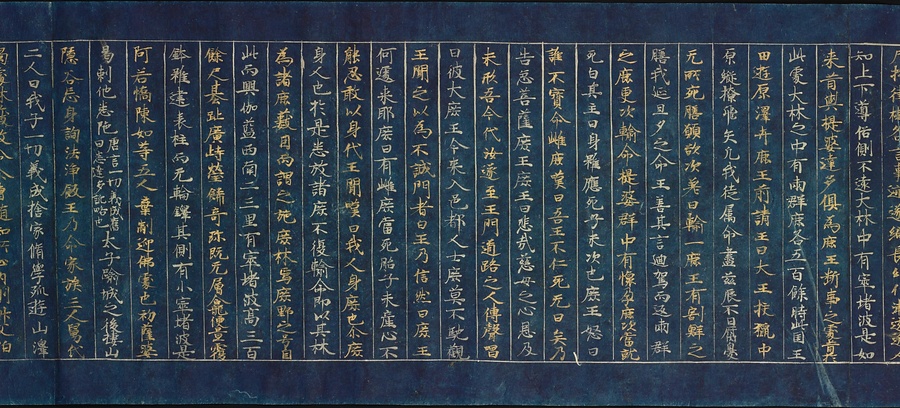 知上下導佑側不遠大林中有窣堵波是如
來昔與提婆達多俱為鹿王斷事之處昔於
此處大林之中有兩群鹿各五百餘時此國王
田遊原澤𦬇鹿王前請王曰大王挍獵中
原縱燎飛矢凡我徒属命盡茲晨不日腐臭
无所充膳願欲次差日輸一鹿王有割鮮之
膳我延旦夕之命王善其言迴駕而返兩群
之鹿更次輸命提婆群中有懷孕鹿次當就
死白其王曰身雖應死子未次也鹿王怒曰
誰不寶命雌鹿嘆曰吾王不仁死无日矣乃
告急菩薩鹿王鹿王曰悲哉慈母之心恩及
未形吾今代汝遂至王門道路之人傳聲唱
曰彼大鹿王今來入邑都人士庶莫不馳觀
王聞之以為不誠門者白王乃信然曰鹿王
何遽來耶鹿曰有雌鹿當死胎子未產心不
能忍敢以身代王聞嘆曰我人身鹿也尒鹿
身人也於是悉放諸鹿不復輸命即以其林
為諸鹿藪因而謂之施鹿林焉鹿野之号自
此而興伽藍西南二三里有窣堵波高三百
餘尺基趾廣峙瑩飾奇珎既无層龕便置覆
鉢雖建表柱而无輪鐸其側有小窣堵波是
阿若憍陳如等五人棄制迎佛處也初薩婆
曷剌他悉陁唐言一切義成舊曰悉達多訛略也太子踰城之後棲山
隱谷忘身詢法淨飯王乃命家族三人舅氏
二人曰我子一切義成捨家脩學孤遊山澤